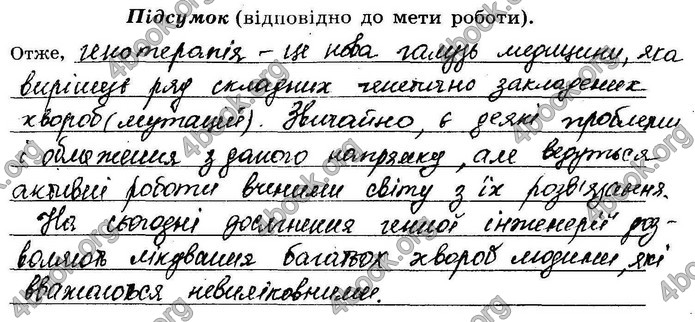 Підсумок (відповідно до мети роботи).
Отже, генотерапія – це нова галузь медицини, яка
вирішує ряд складних генетично закладених
хвороб (мутацій). Звичайно, є деякі проблеми
і обмеження з даного напрямку, але ведуться
активні роботи вченими світу з їх розв'язання.
На сьогодні досягнення генної інженерії доз-
воляють лікування багатьох хвороб людини, які
вважаються невиліковними.
4book.org